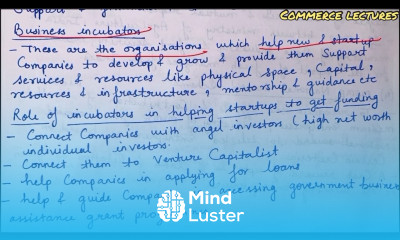 Support &
COMMERCE LECTURES
Business incubators
- These are the organisations which help new & startup
Companies to develop & grow & provide them Support
services & resources like physical space, Capital,
resources & infrastructure, mentorship & guidance etc
Role of incubators in helping startups to get funding
- Connect Companies with angel investors (high net worth
individual investors.
- Connect them to Venture Capitalist
- help Companies in applying for loans
- help & guide in accessing government business
assistance grant
Mind
Luster